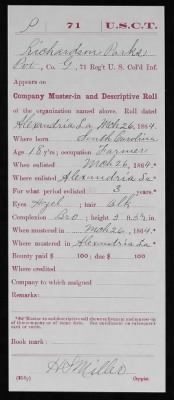 P 71 U.S.C.T.
Richardson Parks
Pvt., Co. G, 71 Reg't U. S. Col'd Inf.
Appears on
Company Muster-in and Descriptive Roll
of the organization named above. Roll dated
Alexandria La, Mch 26, 1864.
Where born South Carolina
Age 18 y'rs; occupation Farmer
When enlisted Mch 26, 1864.*
Where enlisted Alexandria La*
For what period enlisted 3 years.*
Eyes Hzel; hair Blk
Complexion Bro; height 5 ft. in.
When mustered in Mch 26, 1864.*
Where mustered in Alexandria La*
Bounty paid $ 100; due $ 100
Where credited
Company to which assigned
Remarks:
*See Muster-in and descriptive roll showing enlistment and muster-in
of this company as of same date. See enrollment on subsequent
card or cards.
Book mark:
Miller
Copyist